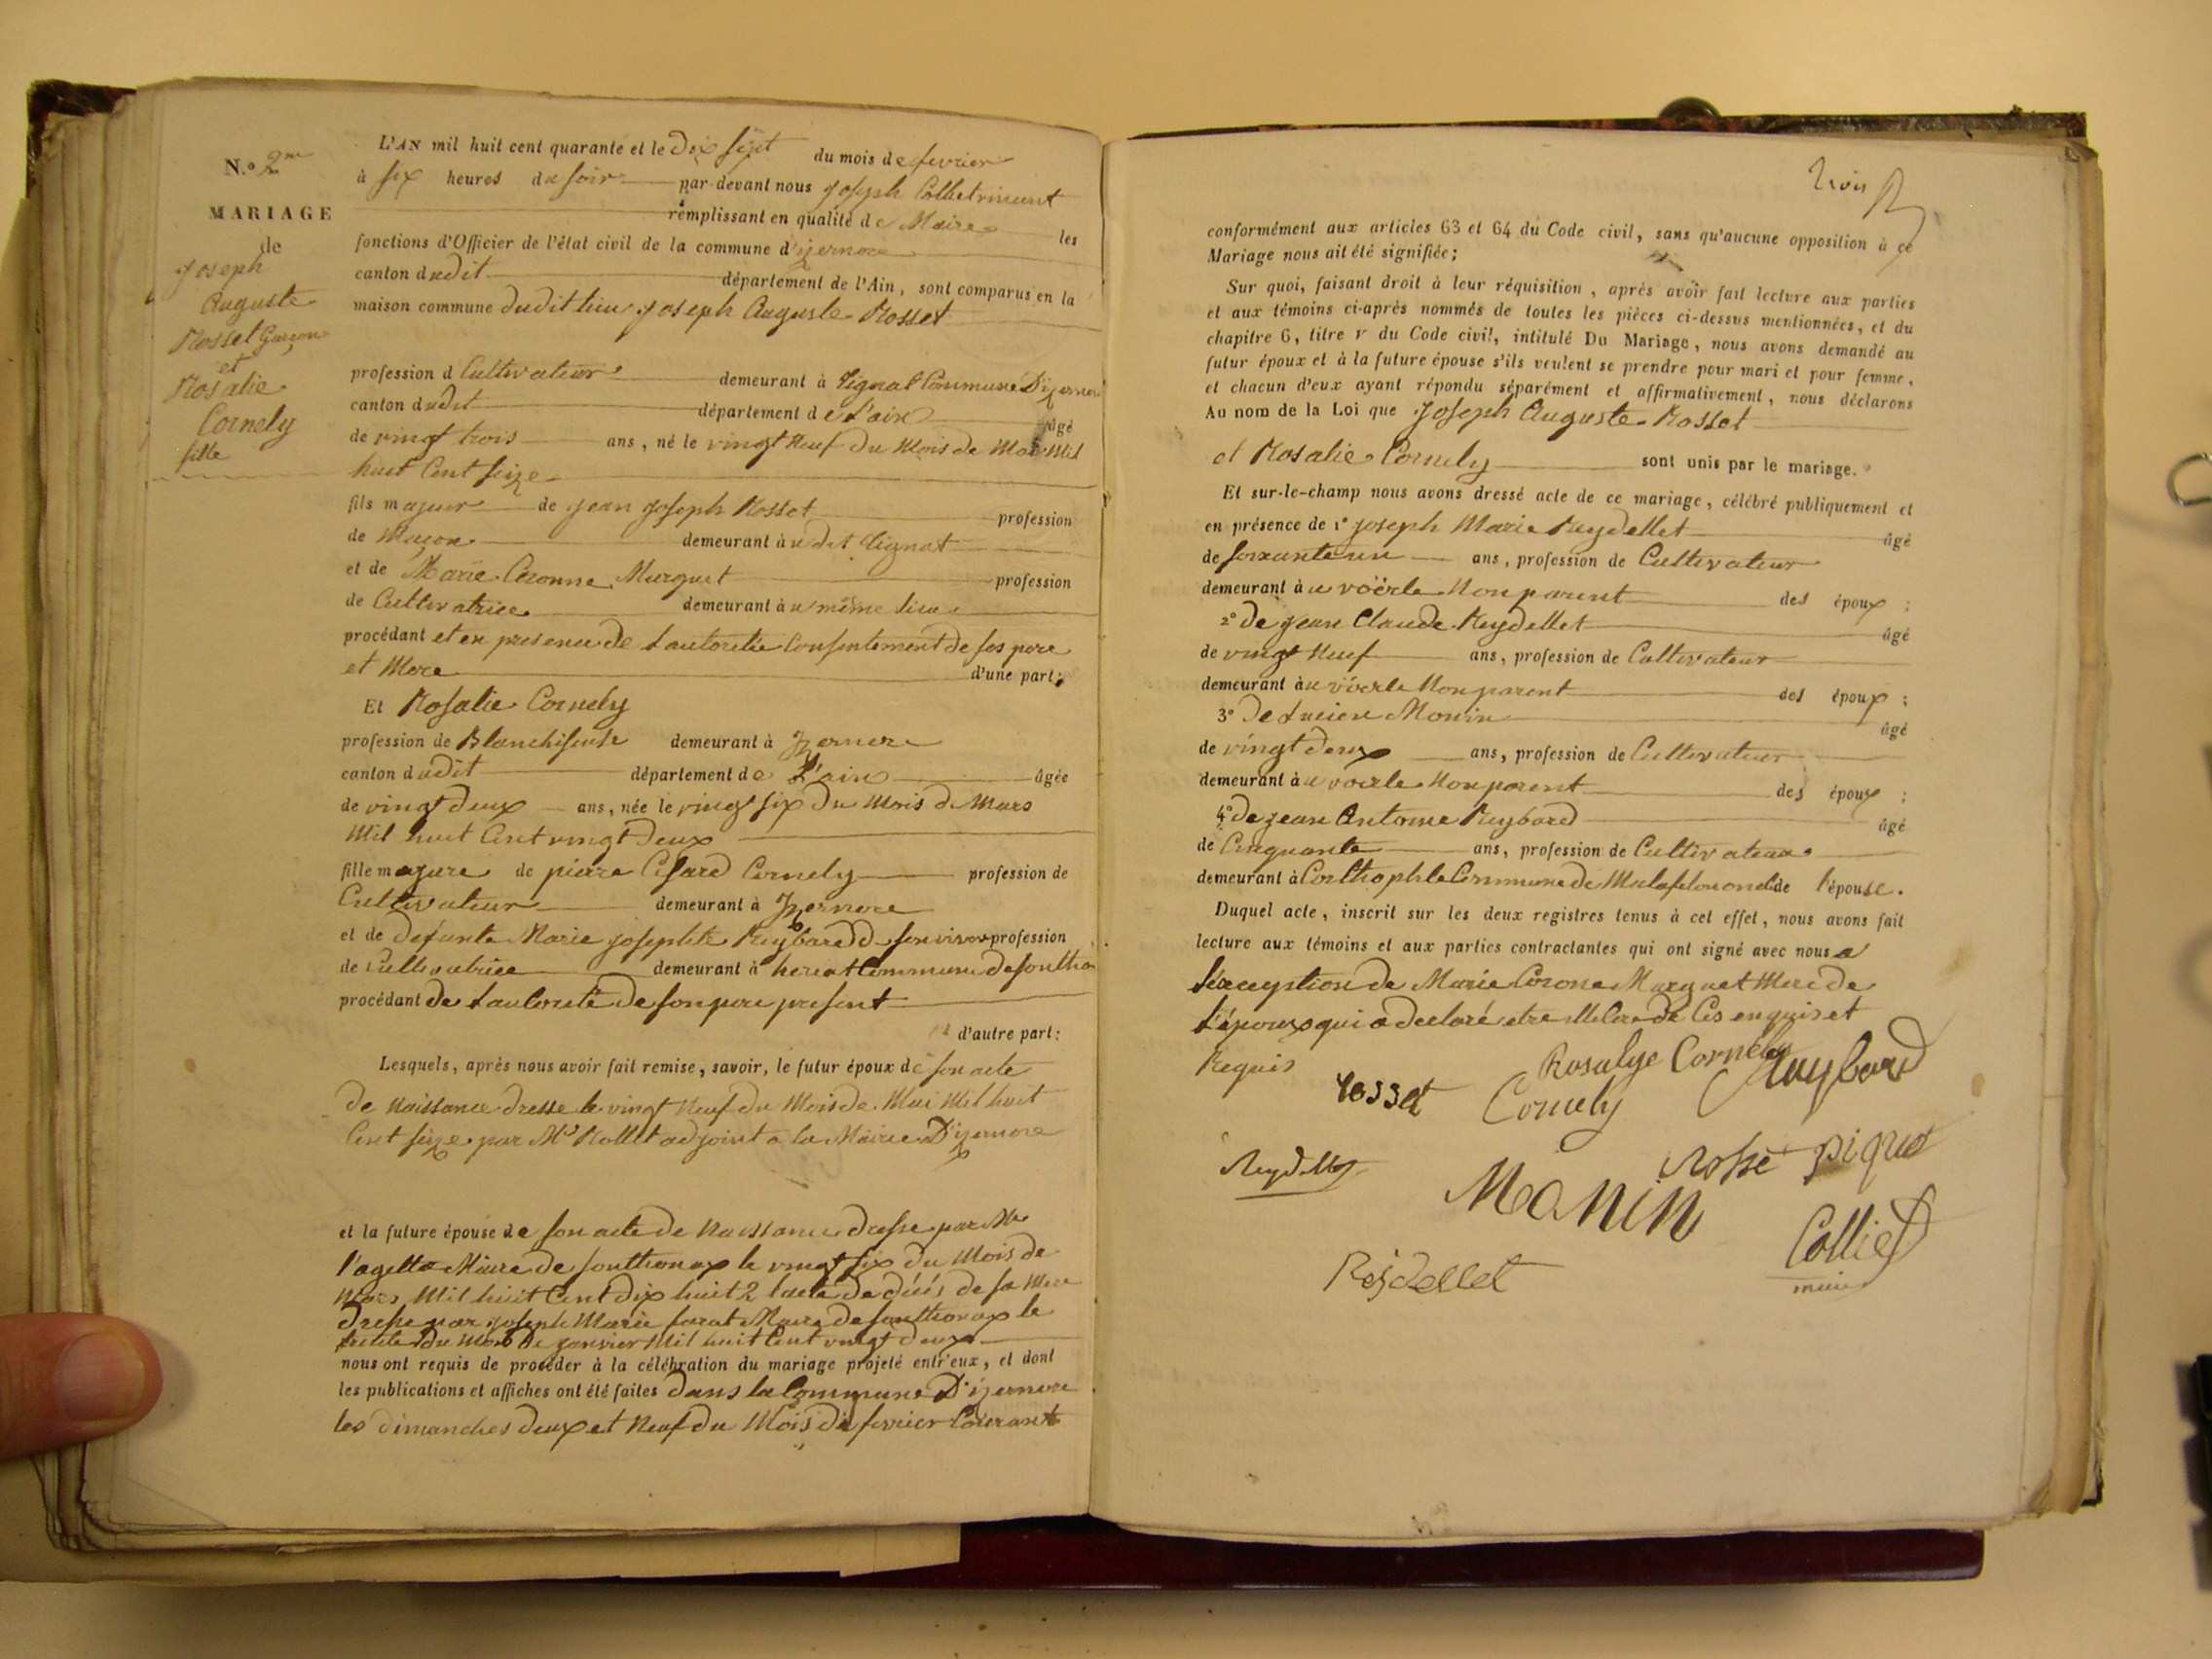 N.o 2me
MARIAGE
de
Joseph
Auguste
Rosset Garçon
et
Rosalie
Cornely
fille
L'AN mil huit cent quarante et le dix sept du mois de fevrier
à six heures du soir par-devant nous Joseph
remplissant en qualité de Maire les
fonctions d'Officier de l'état civil de la commune d'izernore
canton dudit département de l'Ain, sont comparus en la
maison commune dudit lieu Joseph Auguste Rosset
profession d Cultivateur demeurant à Tignat Commune D'izernore
canton dudit département de L'ain âgé
de vingt trois ans, né le vingt Neuf Du Mois de Mai Mil
huit Cent seize
fils majeur de jean joseph Rosset profession
de Maçon demeurant à udit tignat
et de Marie Coronne Murguet profession
de Cultivatrice demeurant à u même lieu
procédant et en presence de Consentement de ses pere
et Mere d'une part;
Et Rosalie Cornely
profession de Blanchiseuse demeurant à Izernore
canton dudit département de L'ain âgée
de vingt deux ans, née le vingt six Du Mois de Mars
Mil huit Cent vingt Deux
fille majure de pierre Cesard Cornely profession de
Cultivateur demeurant à Izernore
et de defunte Marie josephte Reybard d son vivan profession
de Cultivatrice demeurant à heriat Commune de sontho
procédant de Lautorité De son pere present
d'autre part:
Lesquels, après nous avoir fait remise, savoir, le futur époux de son acte
De Naissance dresse le vingt Neuf Du Mois de Mai Mil huit
Cent seize par Mr Rollet adjoint a la Mairie D'izernore
et la future épouse de son acte De Naissance Dresse par Mr
Maire de sonthonax le vingt six Du Mois de
Mars Mil huit Cent Dix huit 2 Lacte De déces de sa Mere
Dresse par joseph Marie farat Maire De sonthonax le
trente Du Mois De janvier Mil huit Cent vingt deux
nous ont requis de procéder à la célébration du mariage projeté entr'eux, et dont
les publications et affiches ont été faites Dans la Commune D'izernore
les dimanches Deux et Neuf Du Mois De fevrier Courant
trois
conformément aux articles 63 et 64 du Code civil, sans qu'aucune opposition à ce
Mariage nous ait été signifiée;
Sur quoi, faisant droit à leur réquisition, après avoir fait lecture aux parties
et aux témoins ci-après nommés de toutes les pièces ci-dessus mentionnées, et du
chapitre 6, titre v du Code civil, intitulé Du Mariage, nous avons demandé au
futur époux et à la future épouse s'ils veulent se prendre pour mari et pour femme,
et chacun d'eux ayant répondu séparément et affirmativement, nous déclarons
Au nom de la Loi que Joseph Auguste Rosset
et Rosalie Cornely sont unis par le mariage.
Et sur-le-champ nous avons dressé acte de ce mariage, célébré publiquement et
en présence de 1o Joseph Marie Reydellet âgé
de soixante un ans, profession de Cultivateur
demeurant à u voërle Non parent des époux ;
2o De jean Claude Reydellet âgé
de vingt Neuf ans, profession de Cultivateur
demeurant à u voërle Non parent des époux ;
3o De Lucien Monin âgé
de vingt deux ans, profession de Cultivateur
demeurant à u voerle Non parent des époux ;
4o De jean Antoine Reybard âgé
de Cinquante ans, profession de Cultivateur
demeurant à Commune De de l'épouse.
Duquel acte, inscrit sur les deux registres tenus à cet effet, nous avons fait
lecture aux témoins et aux parties contractantes qui ont signé avec nous a
Lexception de Marie Corone Murguet Mere de
L'époux qui a declaré etre illetre de Ces enquis et
Requis
Rosalye Cornély
Rosset Cornely Reybard
Reydellet
Monin Rosset piquet
Reydellet Colliet
maire